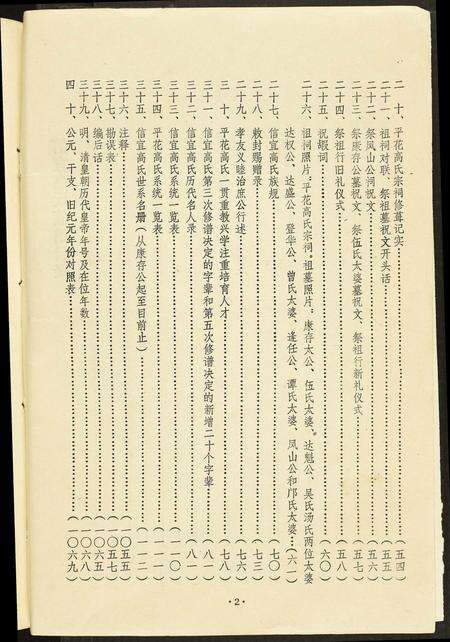 二 十、平花高氏宗祠修葺记实………(五四)
二十一、祖祠对联、祭祖墓祝文开头话………(五五)
二十二、祭凤山公祠祝文………(五六)
二十三、祭康存公墓祝文、祭伍氏太婆墓祝文、祭祖行新礼仪式………(五七)
二十四、祭祖行旧礼仪式………(五八)
二十五、祝嘏词………(六〇)
二十六、祖祠照片:平花高氏宗祠。祖墓照片:康存太公、伍氏太婆。达魁公、吴氏汤氏两位太婆
达权公、达盛公、登华公、曾氏太婆、逢任公、谭氏太婆、凤山公和邝氏太婆…(六一)
二十七、信宜高氏族规………(七〇)
二十八、敕封赐赠录………(七三)
二十九、孝友义睦治庶公行述………(七六)
三 十、平花高氏一贯重教兴学注重培育人才………(七八)
三十一、信宜高氏第三次修谱决定的字辈和第五次修谱决定的新增二十个字辈………(八一)
三十二、信宜高氏历代名人录………(八一)
三十三、信宜高氏系统一览表………(一一〇)
三十四、平花高氏系统一览表………(一一一)
三十五、信宜高氏世系名册(从康存公起至目前止)………(一一二)
三十六、注释………(一〇五五)
三十七、勘误表………(一〇五七)
三十八、编后话………(一〇六五)
三十九、明、清皇朝历代皇帝年号及在位年数………(一〇六八)
四 十、公元、干支、旧纪元年份对照表………(一〇六九)
·2·